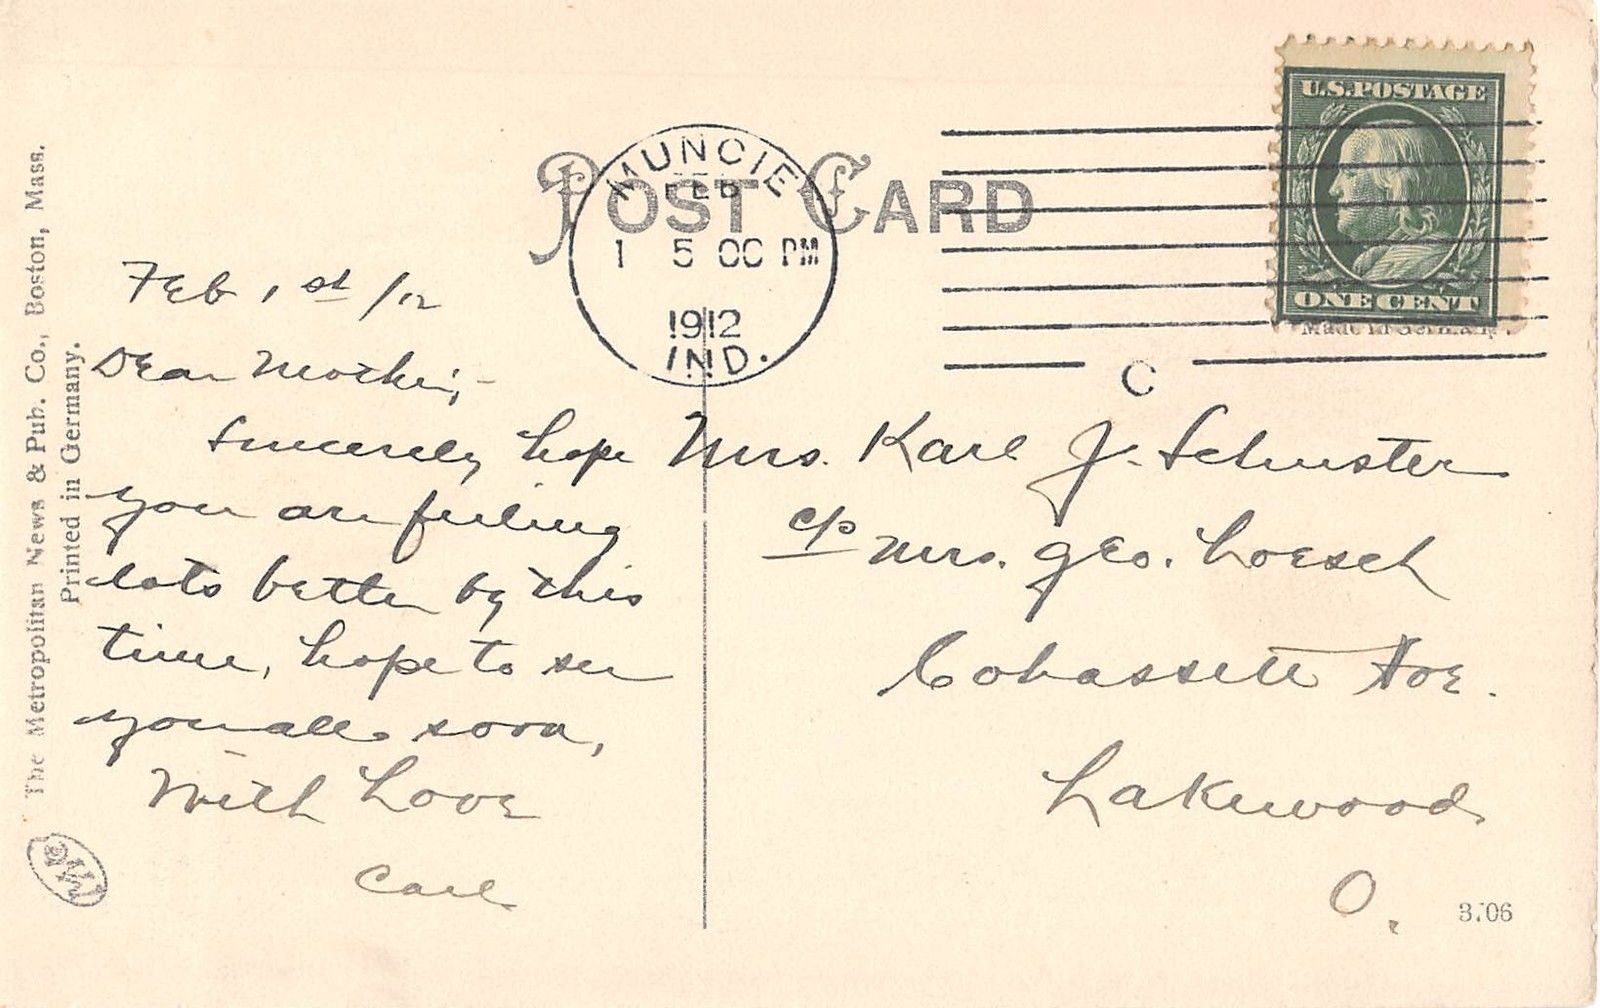 POST CARD
MUNCIE
FEB
1 5 00 PM
1912
IND.
C
U.S. POSTAGE
ONE CENT
Made in Germany.
The Metropolitan News & Pub. Co., Boston, Mass.
Printed in Germany.
Feb 1st/12
Dear Mother,-
Sincerely hope
you are feeling
lots better by this
time, hope to see
you all soon,
With Love
Carl
Mrs. Karl J. Schuster
c/o Mrs. Geo. Loesch
Cohassett Ave.
Lakewood
O.
3706